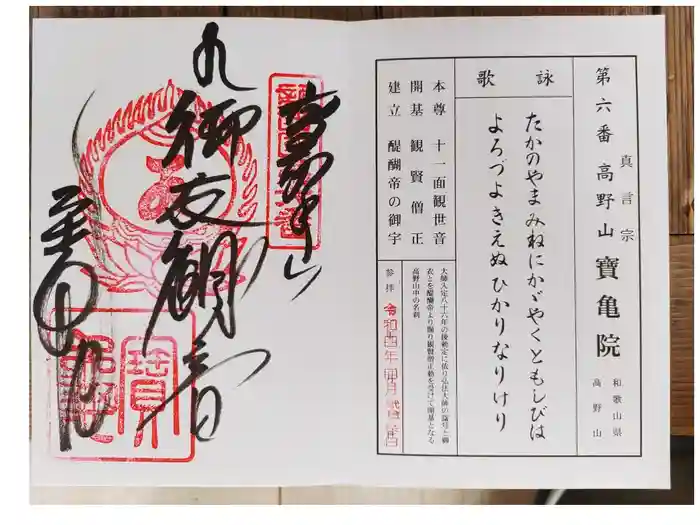 第六番 高野山 寶亀院
真言宗
和歌山県
高野山
詠歌
たかのやまみねにかゞやくともしびは
よろづよきえぬひかりなりけり
本尊 十一面観世音
開基 観賢僧正
建立 醍醐帝の御宇
大師入定八十六年の後勅定に依り弘法大師の諡号と御
衣とを醍醐帝より賜り観賢僧正勅を受けて開基となる
高野山中の名刹
参拝 令和四年
高野山
御衣観音
寶亀院